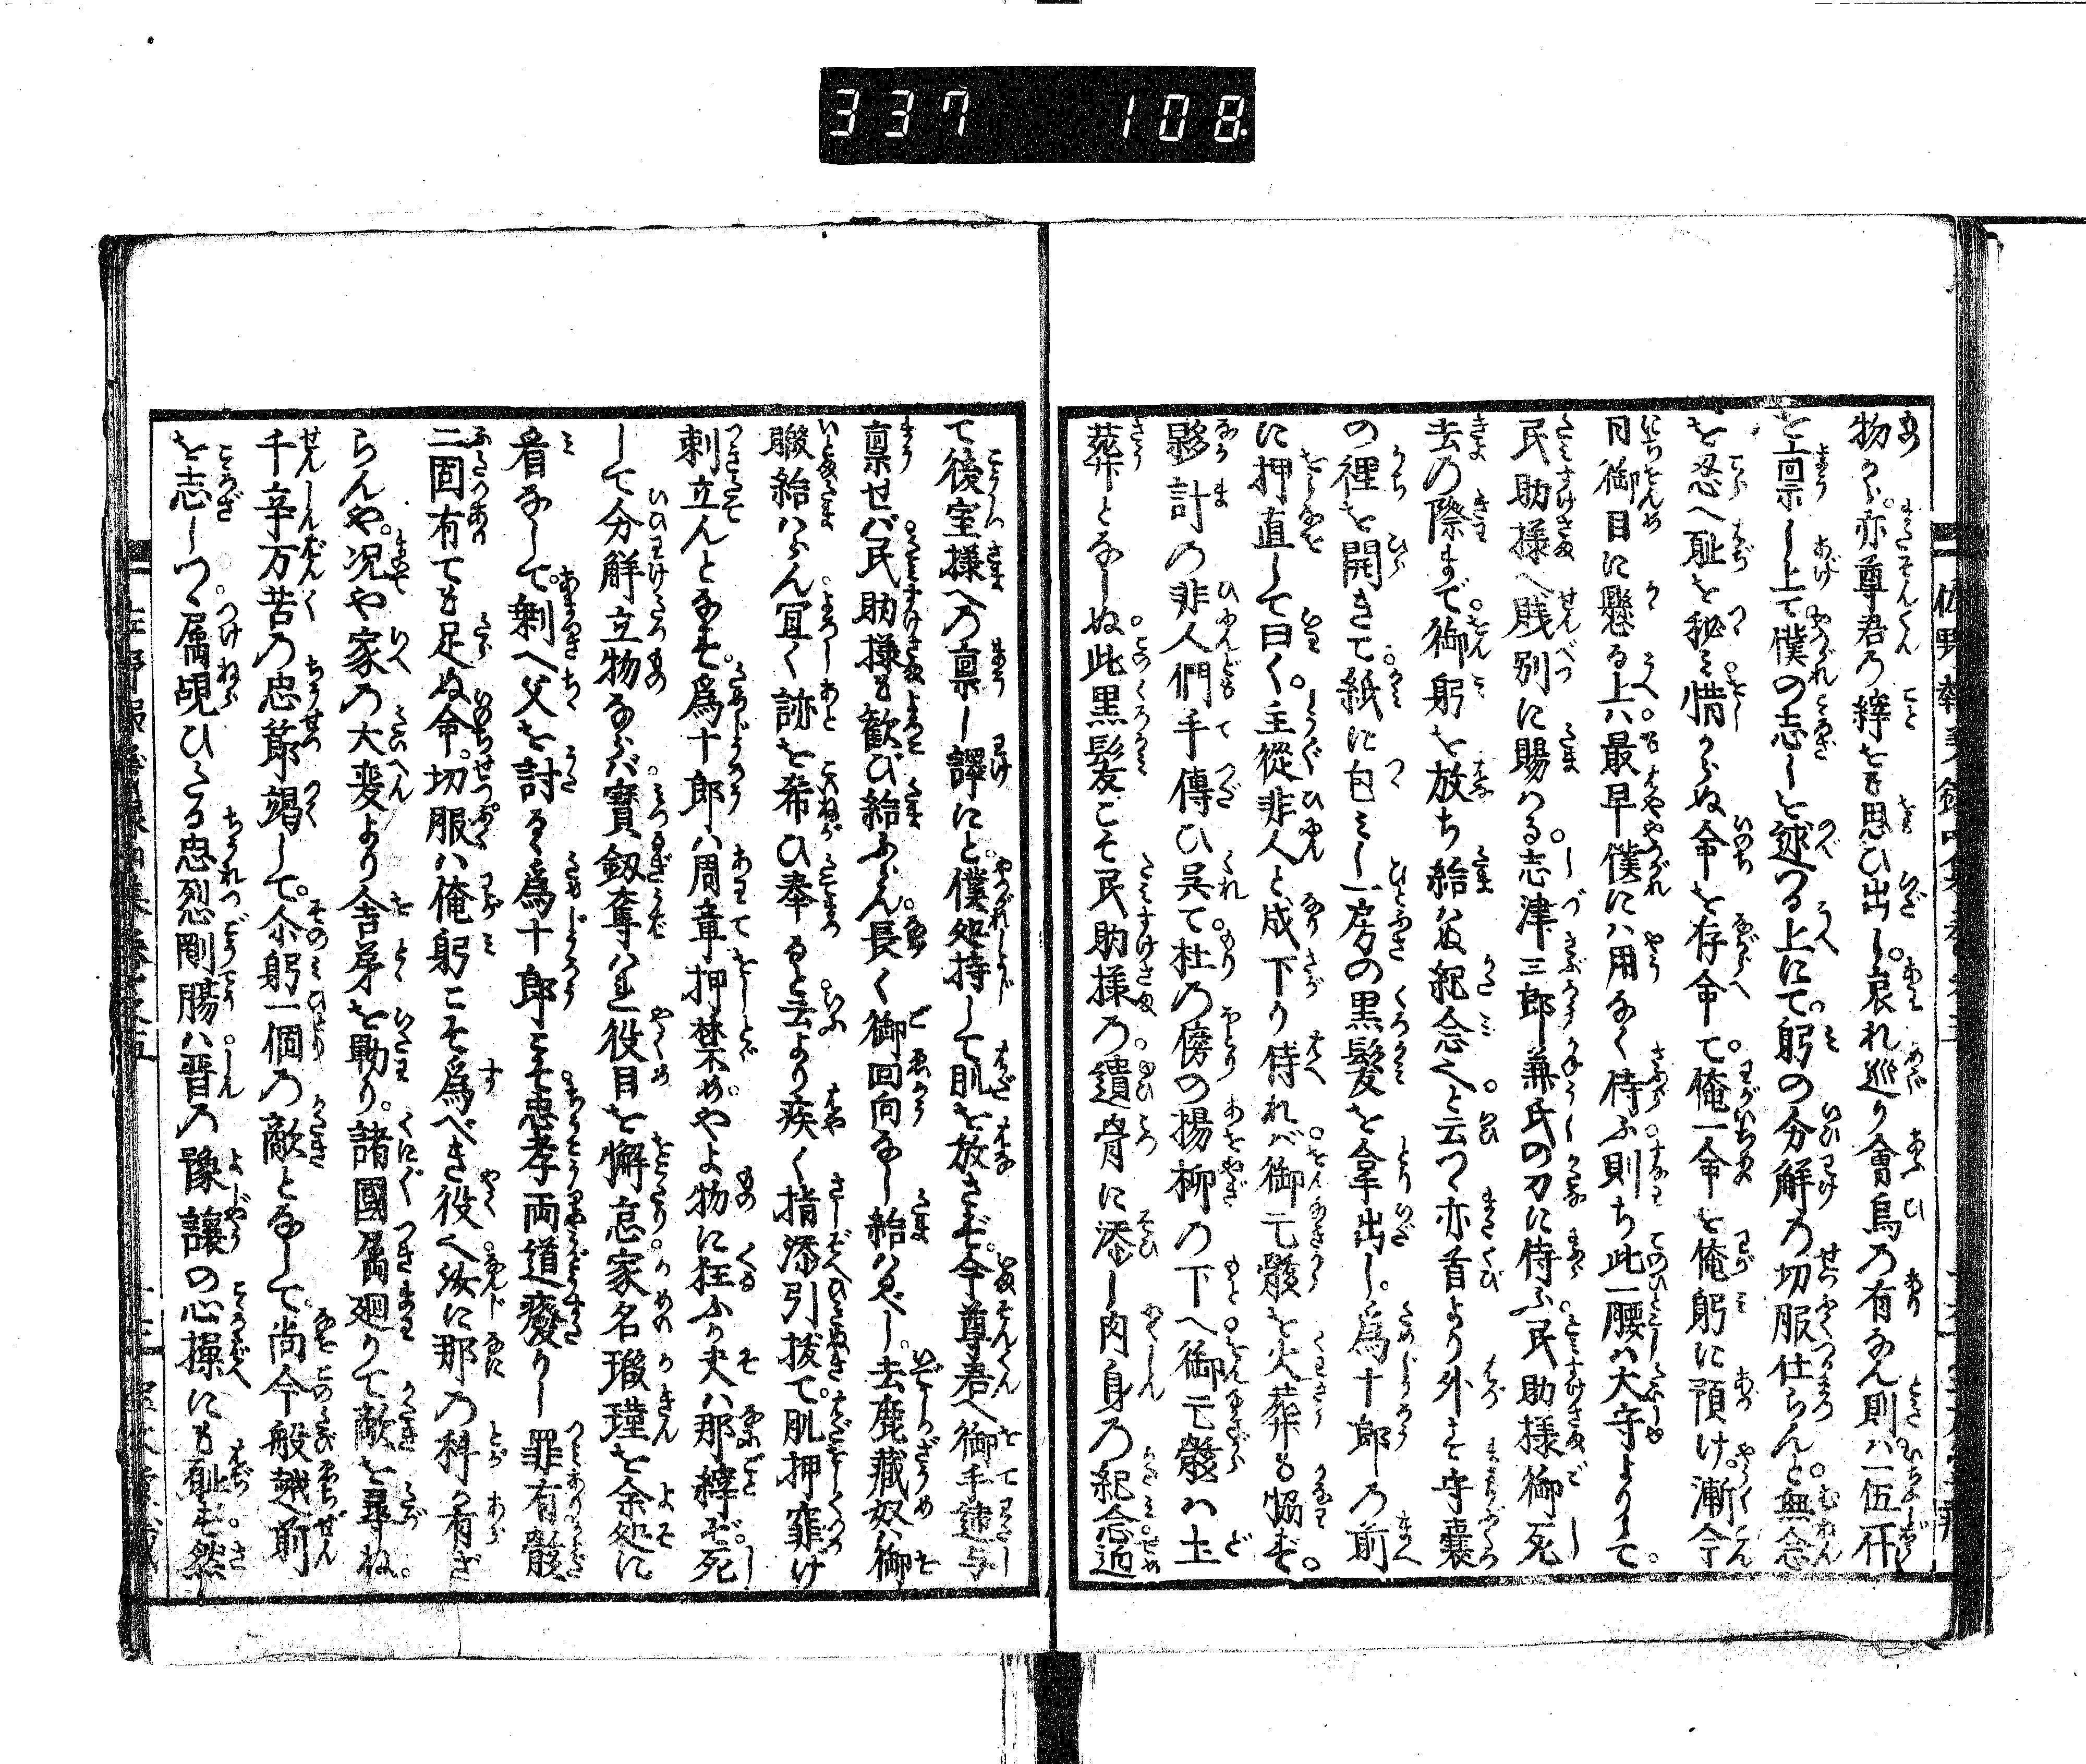 337 108
物から。亦尊君乃縡をも思ひ出し。哀れ巡り會鳥乃有なん則ハ一伍一什
を上稟し上て僕の志しを述つる上にて。躬の分解乃切服仕らんと無念
を忍へ耻を秘ミ惜からぬ命を存命て。俺一命を俺躬に預け。漸々今
日御目に懸る上ハ。最早僕にハ用なく侍ふ則ち此一腰ハ大守よりして
民助様へ賎別に賜ハる。志津三郎兼氏の刀に侍ふ。民助様御死
去の際まで。御躬を放ち給ハぬ紀念也と云つヽ亦首より外す守嚢
の裡を開きて。紙に包ミし一房の黒髪を拿出し。為十郎乃前
に押直して曰く。主従非人と成下り侍れバ。御亡骸を火葬も協ず。
夥計の非人們手傳ひ呉て。杜乃傍の揚柳の下へ。御亡骸ハ土
葬となしぬ。此黒髪こそ民助様の。遺骨に添し肉身乃紀念。迫
て後室様へ乃稟し譯にと。僕処持して肌を放さず。今尊君へ御手逓与
稟せバ。民助様も歓び給ふらん。長く御回向なし給ハるべし。去鹿蔵奴ハ御
暇給ハらん。冝く跡を希ひ奉ると。云より疾く指添引拔て。肌押窄け
刺立んとなす。為十郎ハ周章押禁め。やよ物に狂ふか夫ハ那縡ぞ。死
して分解立物ならバ。寳釼奪ハれ役目を懈怠。家名瑕瑾を余処に
看なして。剰へ父を討るヽ為十郎こそ。忠孝両道癈りし罪有骸
二固有ても足ぬ命。切服ハ俺躬こそ為べき役也。汝に那乃科か有ざ
らんや。况や家の大変より舎弟を勦り。諸國属廻りて敵を尋ね。
千辛万苦乃忠節竭して。尒躬一個乃敵となして。尚今般越前
を志しつヽ。属覘ひたる忠烈剛腸ハ。晋乃豫讓の心操にも耻ず。然